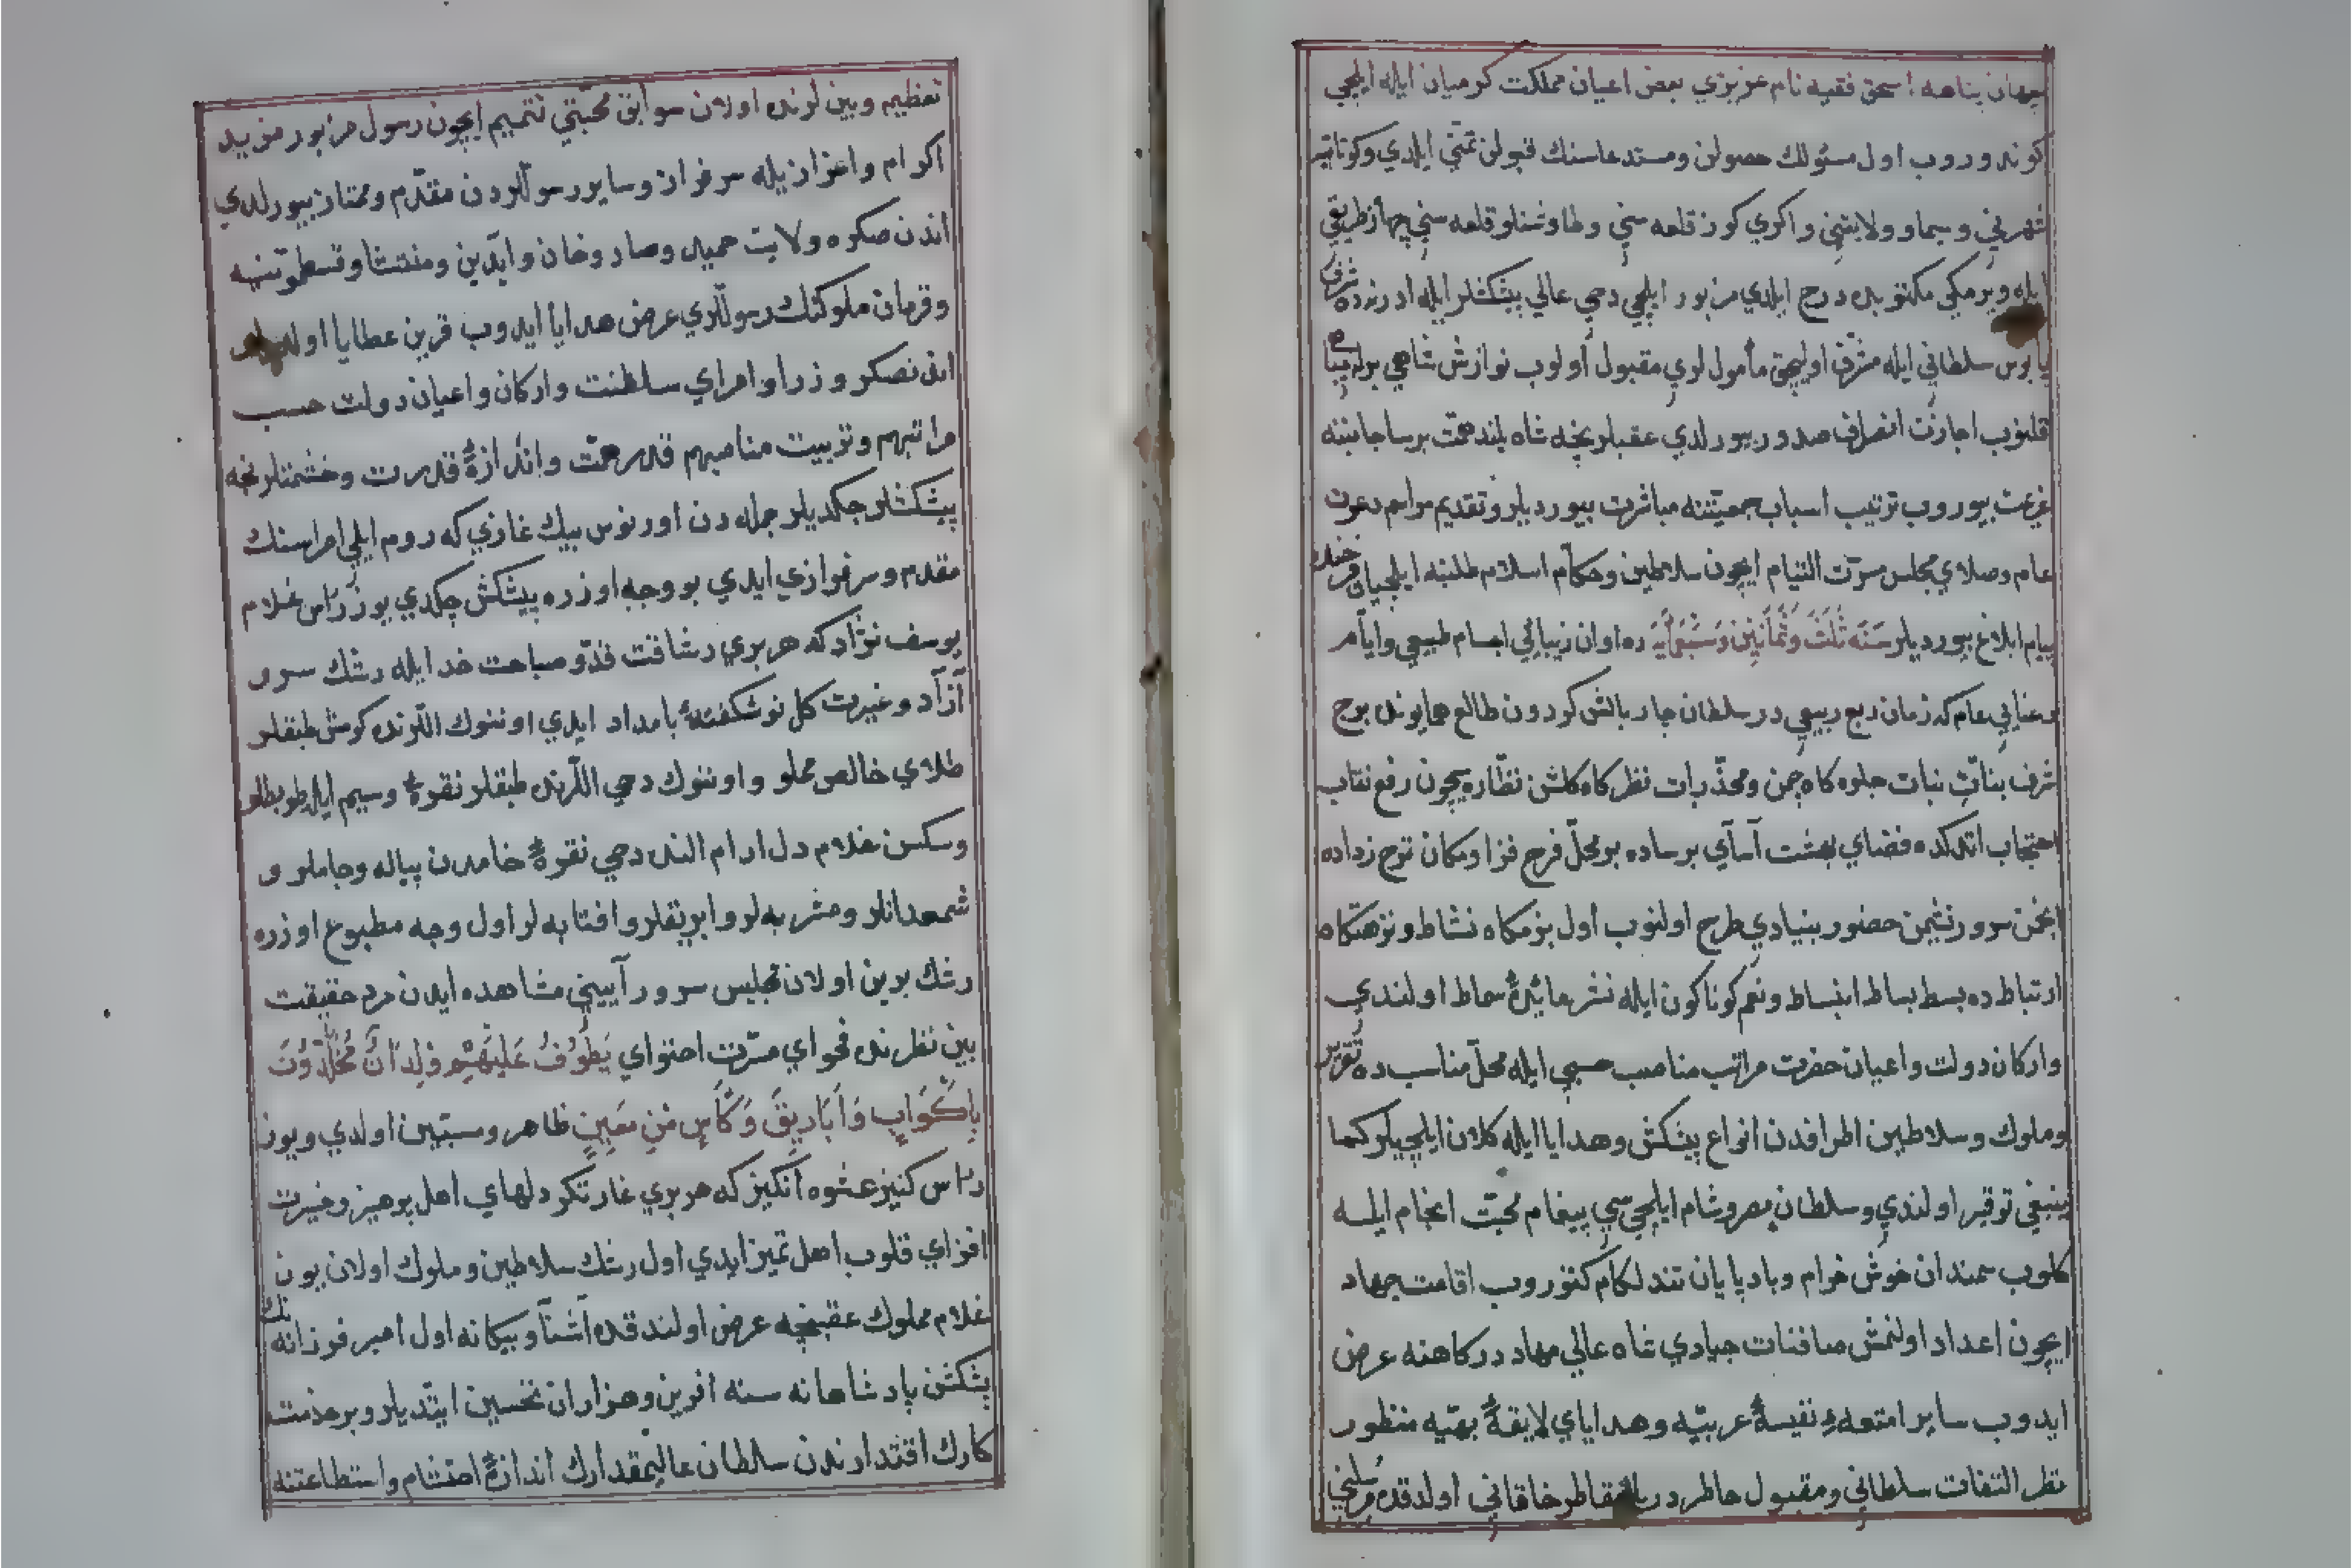 جهان پناهه اسحق فقيه نام عزيزي بعض اعيان مملكت كرميان ايله ايلچي
كوندوروب اول مسئولك حصولن ومستدعاسنك قبولن تمنّي ايلدي وكوتاهيه
شهرني وسماو ولايتني واكري كوز قلعه سني وطاوشنلو قلعه سني جهاز طريقي
ايله ويرمكي مكتوبده درج ايلدي مزبور ايلچي دحي عالي پيشكشلر ايله ادرنه ده شرف
پابوس سلطاني ايله مشرّف اوليجق مأمول لري مقبول اولوب نوازش شاهي برله
قلنوب اجازت انصراف صدور بيورلدي عقبلرنجه شاه بلند همّت برسا جانبنه
عزيمت بيوروب ترتيب اسباب جمعيّتنه مباشرت بيورديلر وتقديم مراسم دعوت
عام وصلاي مجلس مسرّت التيام ايچون سلاطين وحكّام اسلام طلبنه ايلچيان فرخنده
پيام ابلاغ بيورديلر سَنَه ثَلَثَ وَثَمَانِينَ وَسَبْعَمائِه ده اوان زيبائي اجسام طبيعي وايام
رعنايي عام كه زمان ربع ربيعي در سلطان چار بالش كردون طالع همايونده برج
شرف بنات نبات جلوه كاه چمن ومخدّرات نظر كاه كلشن نظّاره ايچون رفع نقاب
احتجاب اتدكده فضاي بهشت آساي برساده بر محلّ فرح فزا ومكان ترح زداده
انجمن سرور نشيمن حضور بنيادي طرح اولنوب اول بزمكاه نشاط ونزهتكاه
ارتباط ده بسط بساط انبساط ونعم كوناكون ايله نشر مائدهٔ سماط اولندي
واركان دولت واعيان حضرت مراتب مناصب حسبي ايله محلّ مناسب ده تقرير
وملوك وسلاطين اطرافدن انواع پيشكش وهدايا ايله كلان ايلچيلر كما
ينبغي توقير اولندي وسلطان مصر وشام ايلچي سي پيغام محبّت انجام ايله
كلوب سمندان خوش خرام وباد پايان تند لكام كتوروب اقامت جهاد
ايچون اعداد اولنمش صافنات جيادي شاه عالي مهاد دركاهنه عرض
ايدوب ساير امتعهء نفيسهٔ عربيّه وهداياي لايقهٔ بهيّه منظور
نظر التفات سلطاني ومقبول خاطر دريا مقاطر خاقاني اولدقده مرسلني
تعظيم وبين لرنده اولان سوابق محبّتي تتميم ايچون رسول مزبور مزيد
اكرام واعزاز يله سرفراز وساير رسوللردن مقدّم وممتاز بيورلدي
اندن صكره ولايت حميد وصاروخان وايدين ومنتشا وقسطمونيه
وقرمان ملوكنك رسوللري عرض هدايا ايدوب قرين عطايا اولديلر
اندنصكر وزرا وامراي سلطنت واركان واعيان دولت حسب
مراتبهم وترتيب مناصبهم قدر همّت واندازهٔ قدرت وحشمتلرنجه
پيشكشلر چكديلر جمله دن اورنوس بيك غازي كه روم ايلي امراسنك
مقدم وسرفرازي ايدي بو وجه اوزره پيشكش چكدي يوز رأس غلام
يوسف نژاد كه هر بري رشاقت قدّ وصباحت خد ايله رشك سرو
آزاد وغيرت كل نوشكفتهٔ بامداد ايدي اوننوك اللرنده كومش طبقلر
طلاي خالص مملو واوننوك دحي اللرنده طبقلر نقرهٔ وسيم ايله طوپطلو
وسكسن غلام دل ارام النده دحي نقرهٔ خامدن پياله وجاملر و
شمعدانلر ومشربه لر وابريقلر وافتابه لر اول وجه مطبوع اوزره
رشك برين اولان مجلس سرور آييني مشاهده ايدن مرد حقيقت
بين نظرنده فحواي مسرّت احتواي يَطُوفُ عَلَيْهِمْ وِلْدَانٌ مُخَلَّدُونَ
بِاَكْوَابٍ وَاَبَارِيقَ وَكَأْسٍ مِنْ مَعِينٍ ظاهر ومستبين اولدي ويوز
رأس كنيز عشوه انكيز كه هر بري غارتكر دلهاي اهل پرهيز وغيرت
افزاي قلوب اهل تميز ايدي اول رشك سلاطين وملوك اولان يوز
غلام مملوك عقبنجه عرض اولندقده آشنا وبيكانه اول امير فرزانه نك
پشكش پادشاهانه سنه افرين وهزاران تحسين ايتديلر وبر خدمت
كارك اقتدارندن سلطان عاليمقدارك اندازهٔ احتشام واستطاعتنه